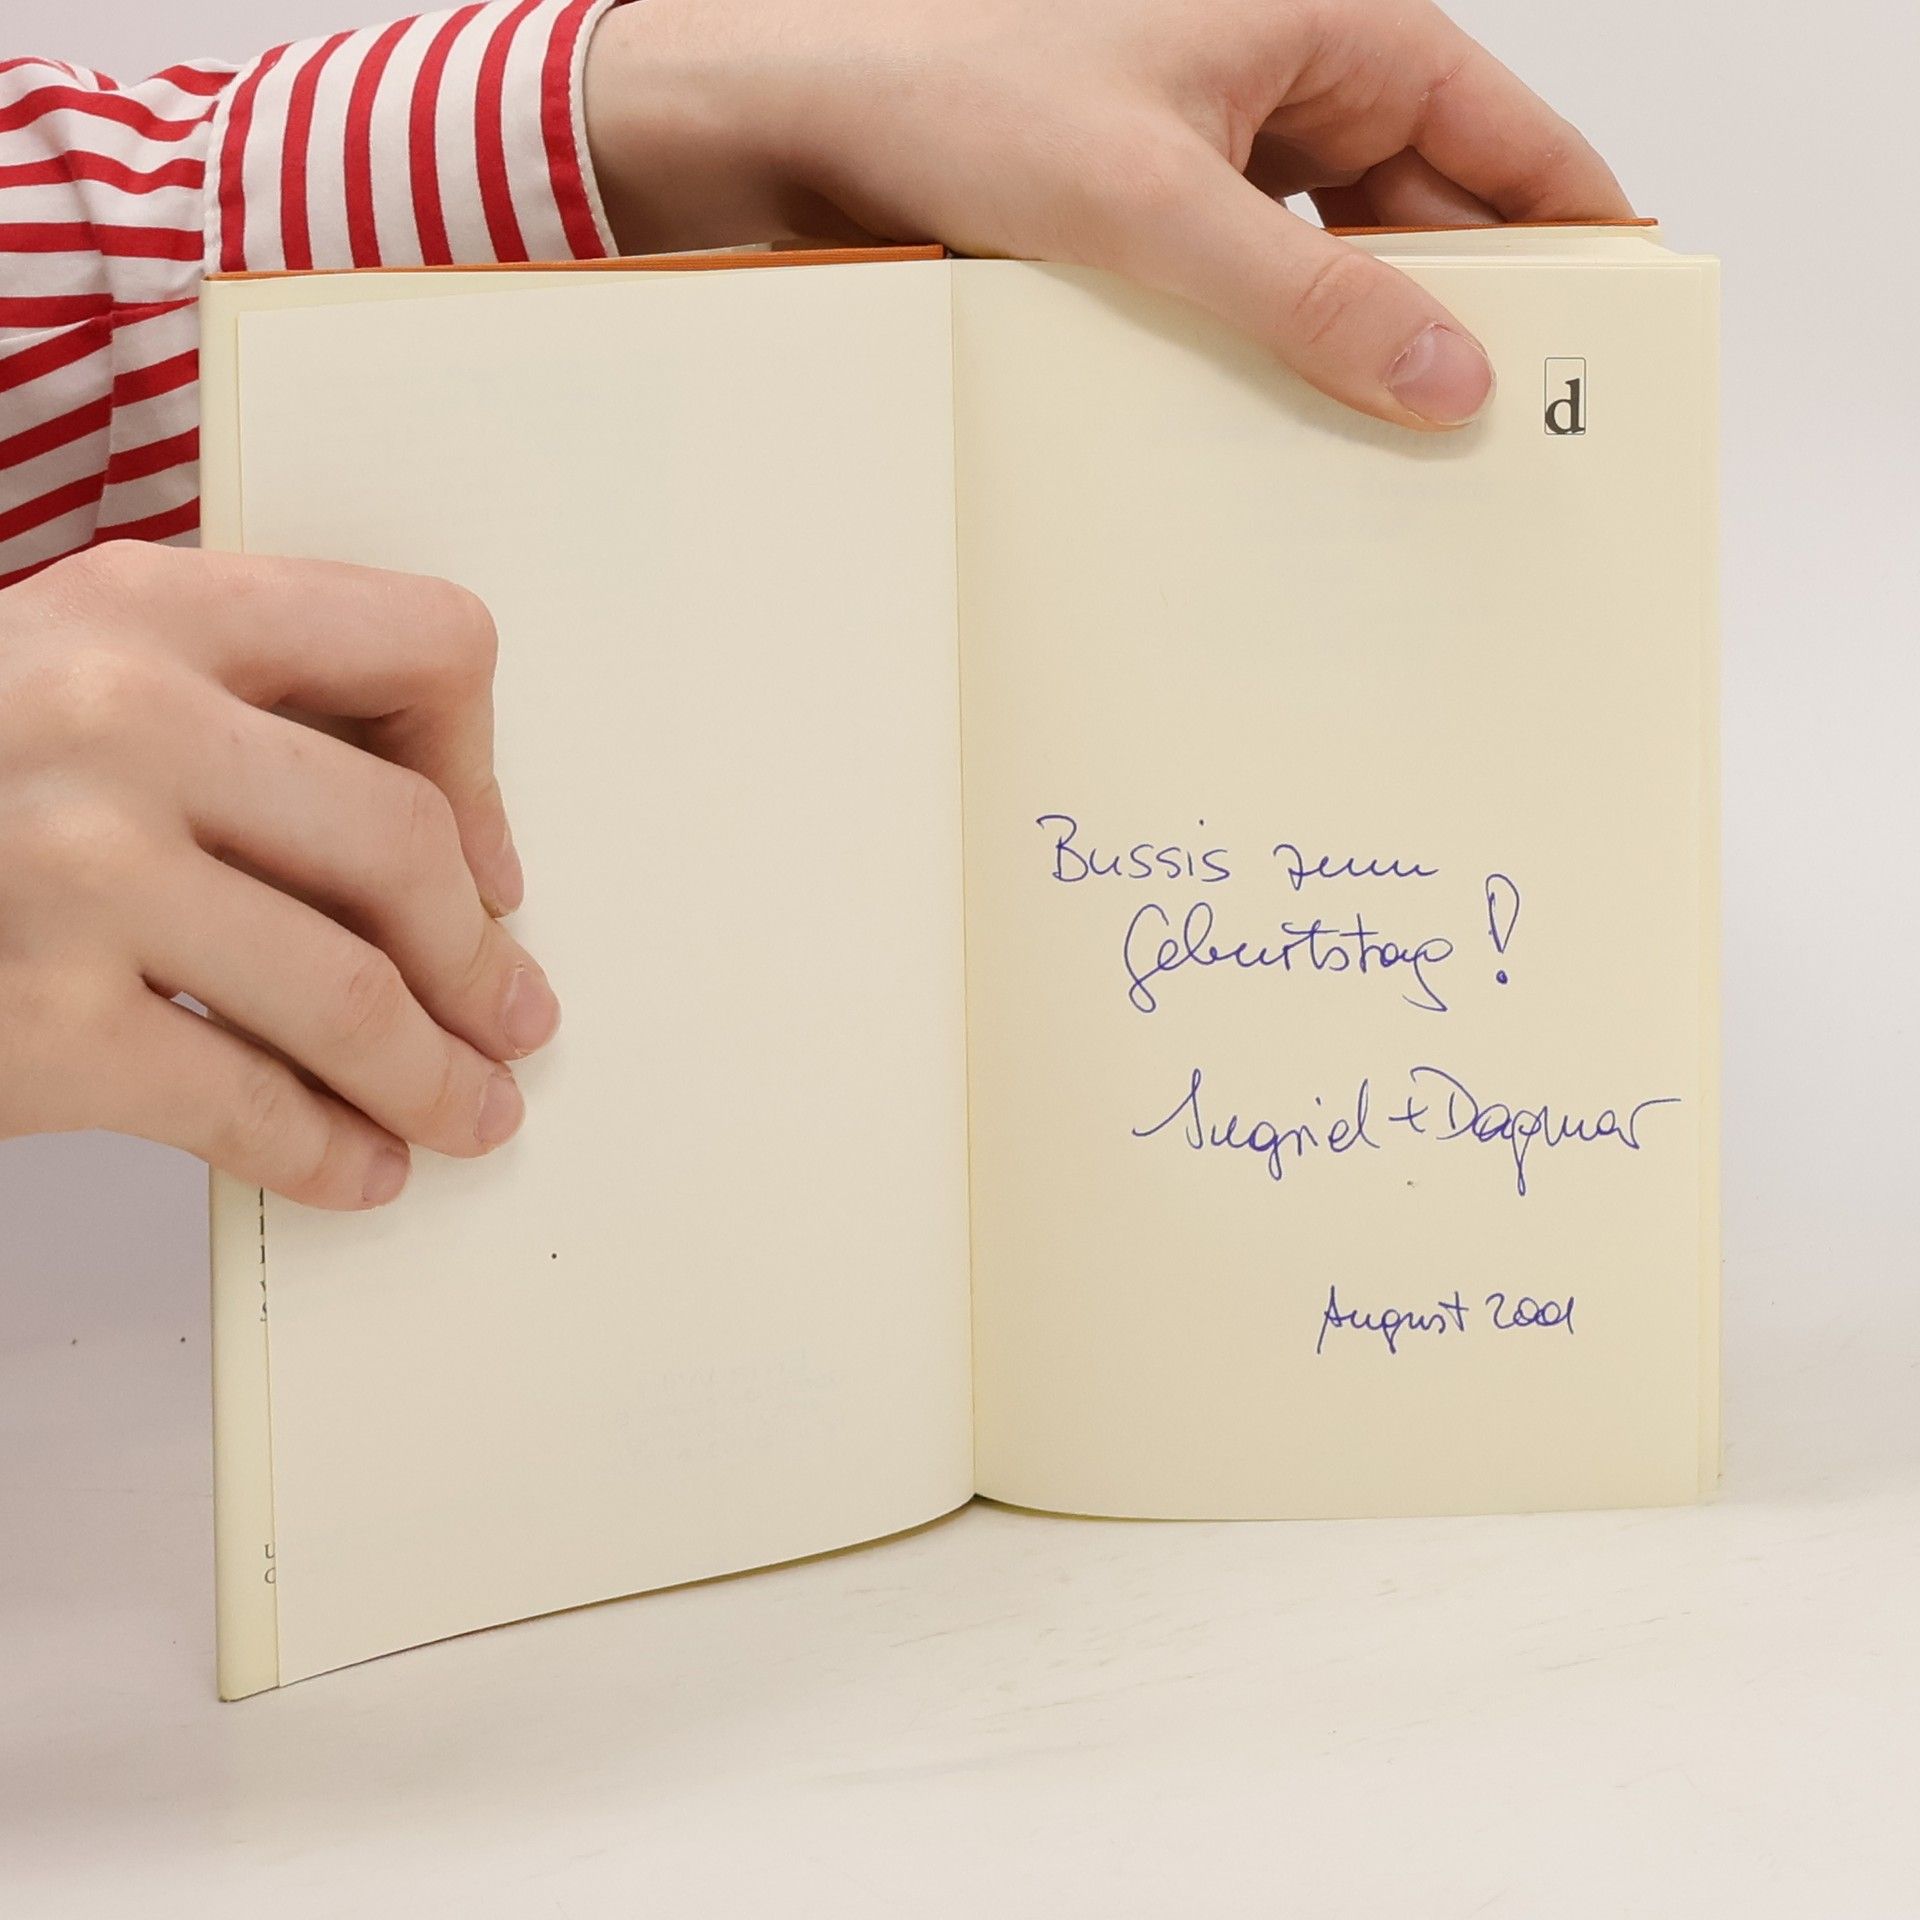 d
Bussis zum
Geburtstag!
Ingrid + Dagmar
August 2001